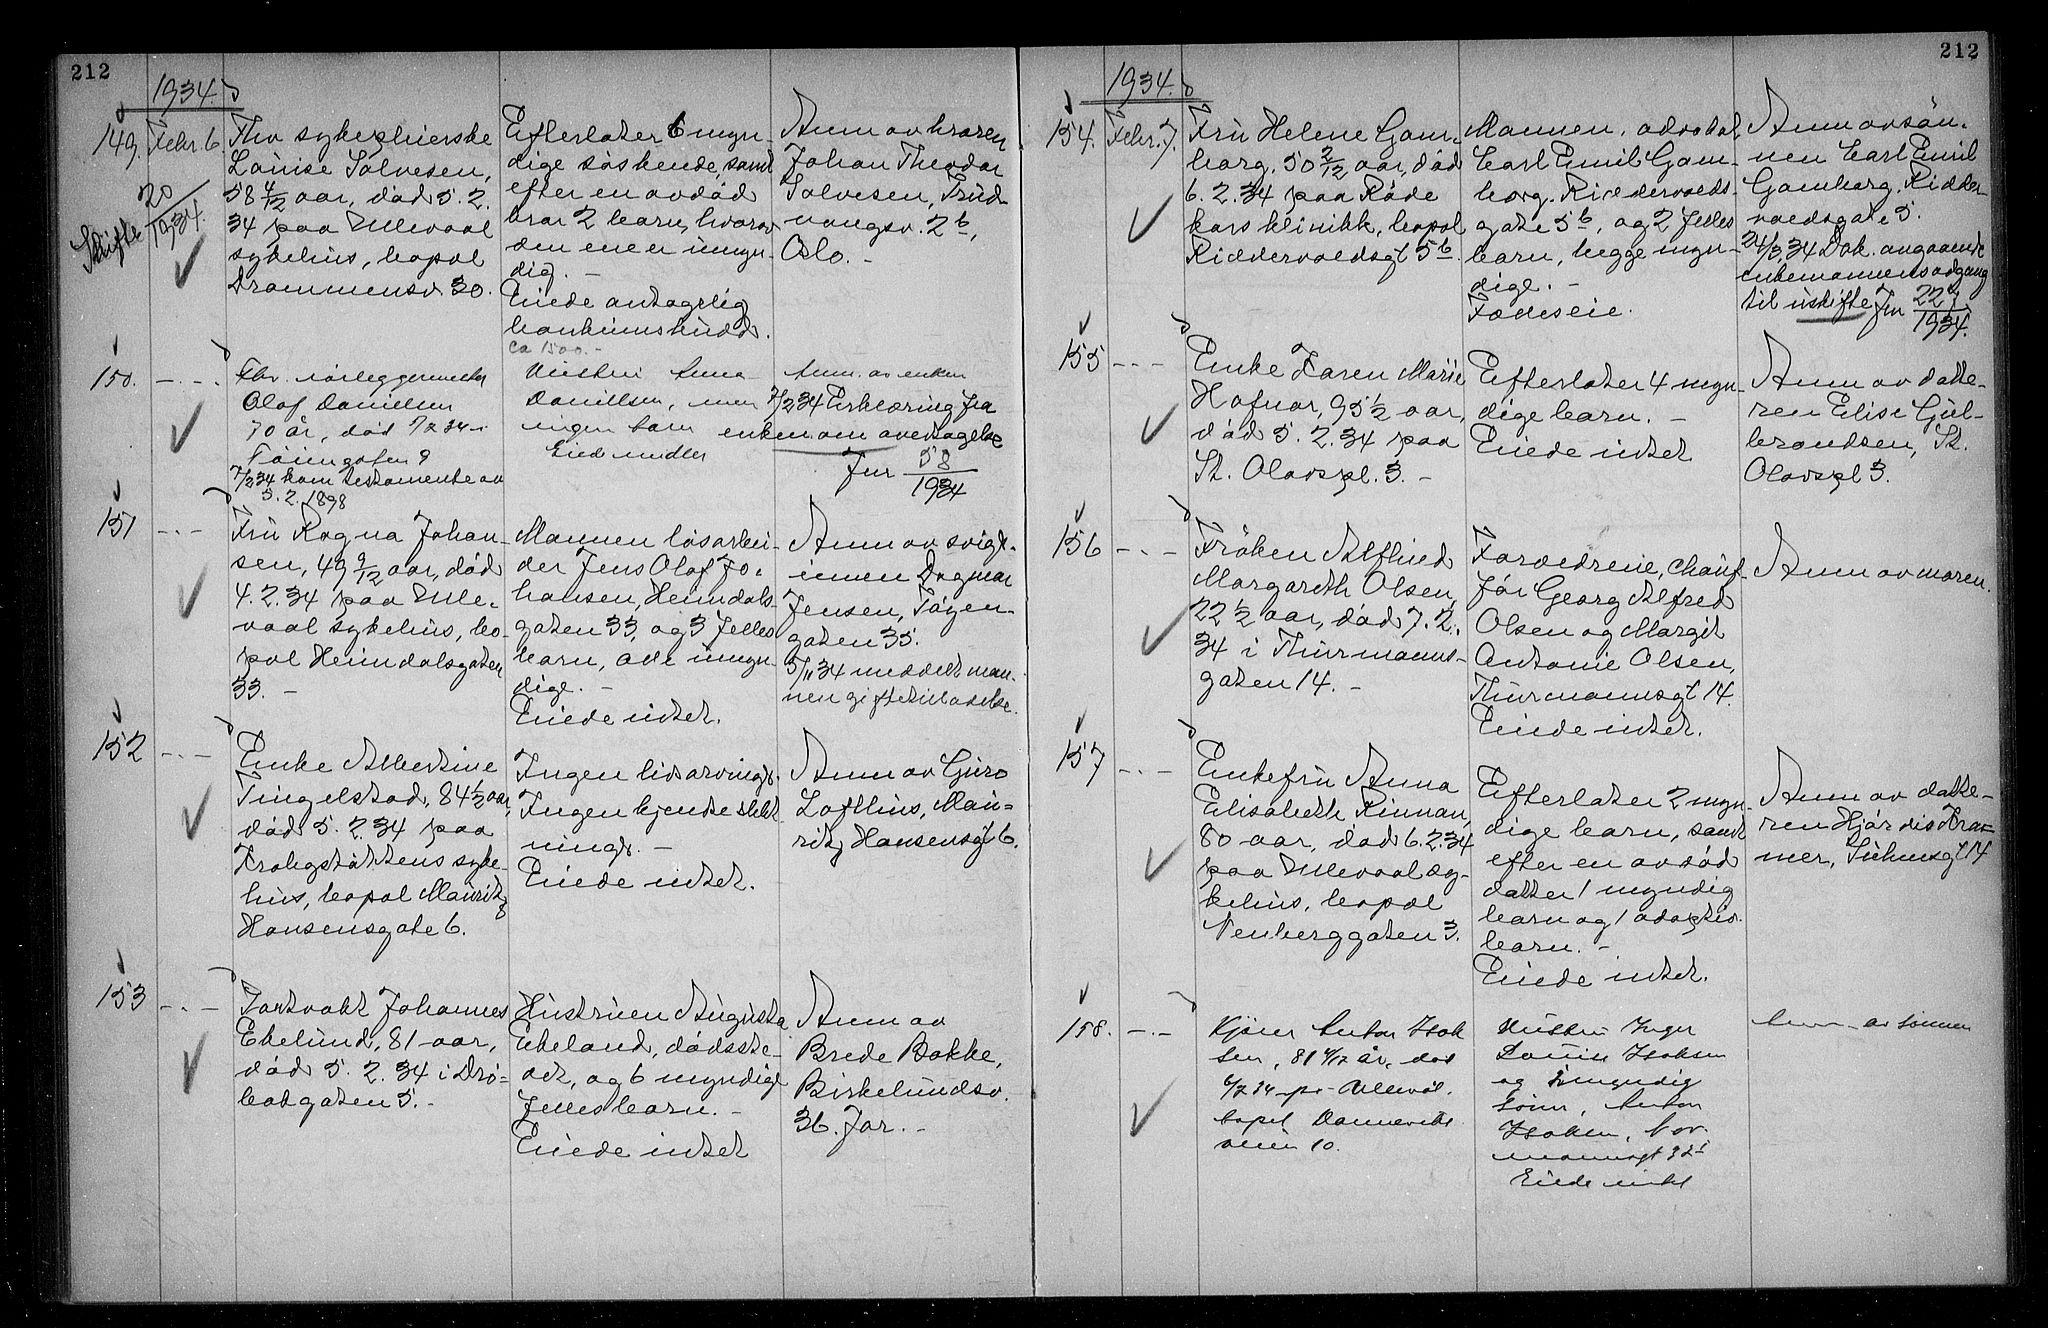 212
1934.
149. Febr. 6.
Fhv sykepleierske
Louise Salvesen,
58 4/12 aar, död 5. 2.
34 paa Ullevaal
sykehus, bopæl
Drammensv. 30.
Skifte 20/1934.
Efterlater 6 myn-
dige söskende, samt
efter en avdöd
bror 2 barn, hvorav
den ene er umyn-
dig. -
Eiede antagelig
bankinnskudd.
ca 1500.-
Anm av broren
Johan Theodor
Salvesen, Trud-
vangsv. 2b,
Oslo. -
150. - . -
Fhv. rörleggermester
Olaf Danielsen
70 år, död 34
Töiengaten 9
7/2 34 kom testamente av
5. 2. 1898
Hustru Anna
Danielsen, men
ingen barn
Eied midler
Anm. av enken
7/2 34 Erklæring fra
enken om overtagelse
Jnr 58/1934
151 - . -
Fru Ragna Johan-
sen, 49 9/12 aar, död
4. 2. 34 paa Ulle-
vaal sykehus, bo-
pæl Heimdalsgaten
33. -
Mannen lösarbei-
der Jens Olaf Jo-
hansen, Heimdals-
gaten 33, og 3 felles
barn, alle umyn-
dige. -
Eiede intet.
Anm av svigr-
innen Dagmar
Jensen, Töyen-
gaten 35.
5/11 34 meddelt man-
nen giftetilladelse.
152 - . -
Enke Albertine
Tingelstad, 84 1/2 aar,
död 5. 2. 34 paa
Krohgstöttens syke-
hus, bopæl Mauritz
Hansensgate 6.
Ingen livsarvingr.
Ingen kjente slekt-
ningr. -
Eiede intet.
Anm av Guro
Lofthus, Mau-
ritz Hansensgt 6.
153 - . -
Portvakt Johannes
Ekelund, 81 aar,
död 5. 2. 34 i Drö-
bakgaten 5. -
Hustruen Augusta
Ekeland, dödsste-
det, og 6 myndige
felles barn. -
Eiede intet
Anm av
Brede Bakke,
Birkelundsv.
36. Jar. -
212
1934.
154. Febr. 7.
Fru Helene Gam-
borg, 50 2/12 aar, död
6. 2. 34 paa Röde
kors klinikk, bopæl
Riddervoldsgt 5b.
Mannen, advokat
Carl Emil Gam-
borg, Riddervolds-
gate 5b, og 2 felles
barn, begge myn-
dige. -
Fælleseie.
Anm av sön-
nen Carl Emil
Gamborg, Ridder-
voldsgate 5.
24/3 34 Dok. angaaende
enkemannens adgang
til uskifte Jnr 227/1934.
155 - - -
Enke Karen Marie
Hafnor, 95 1/2 aar,
död 5. 2. 34 paa
St. Olavspl. 3. -
Efterlater 4 myn-
dige barn. -
Eiede intet
Anm av datte-
ren Elise Gul-
brandsen, St.
Olavspl 3.
156 - . -
Fröken Alfhild
Margareth Olsen,
22 1/2 aar, död 7. 2.
34 i Thurmanns-
gaten 14. -
Forældrene, chauf-
för Georg Alfred
Olsen og Margit
Antonie Olsen,
Thurmannsgt 14.
Eiede intet.
Anm av moren.
157 - . -
Enkefru Anna
Elisabeth Rinnan,
80 aar, död 6. 2. 34
paa Ullevaal sy-
kehus, bopæl
Neuberggaten 3.
Efterlater 2 myn-
dige barn, samt
efter en avdöd
datter 1 myndig
barn og 1 adoptiv-
barn. -
Eiede intet.
Anm av datte-
ren Hjördis Kra-
mer, Suhmsgt 14
158. - . -
Kjörer Anton Isak
sen, 81 år, död
6/2 34 på Ullevål.
bopel Dannevirks
veien 10.
Hustru Inger
Louise Isaksen
og myndig
sönn, Anton
Isaksen, Nor-
mannsgt
Eiede intet
Anm av sönnen